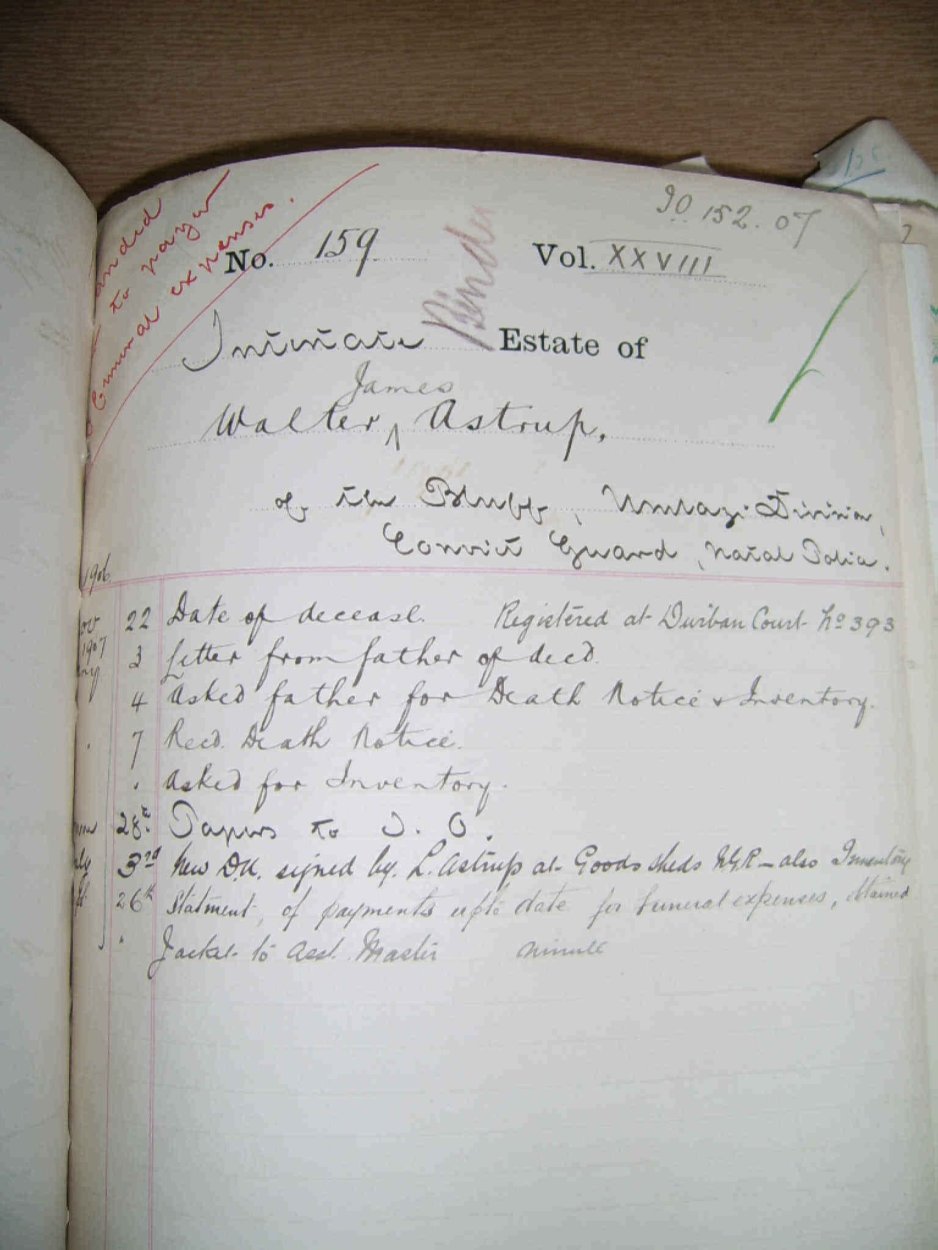 90 152.07
No. 159 Vol. XXVIII
Binder
anded
to pay
funeral expenses.
Intestate Estate of
James
Walter ^ Astrup.
of the Bluff, Umlazi Division,
Convict Guard, Natal Police.
1906
22 Date of decease. Registered at Durban Court No 393
1907
3 Letter from father of decd.
4 Asked father for Death Notice & Inventory.
" 7 Recd. Death Notice.
" Asked for Inventory.
28th Papers to
3rd New D.N. signed by L. Astrup at Goods Sheds N.G.R – also Inventory
26th Statment, of payments upto date for funeral expenses, obtained
" Jacket to Asst. Master minute